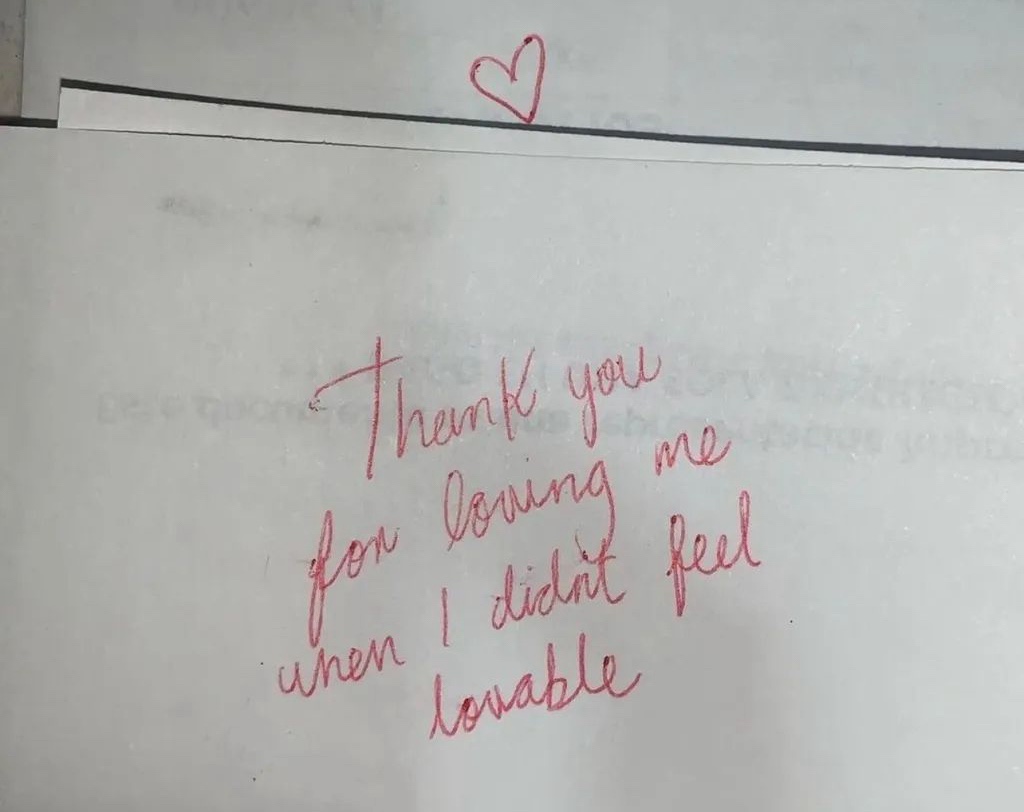 Thank you
for loving me
when I didn't feel
lovable